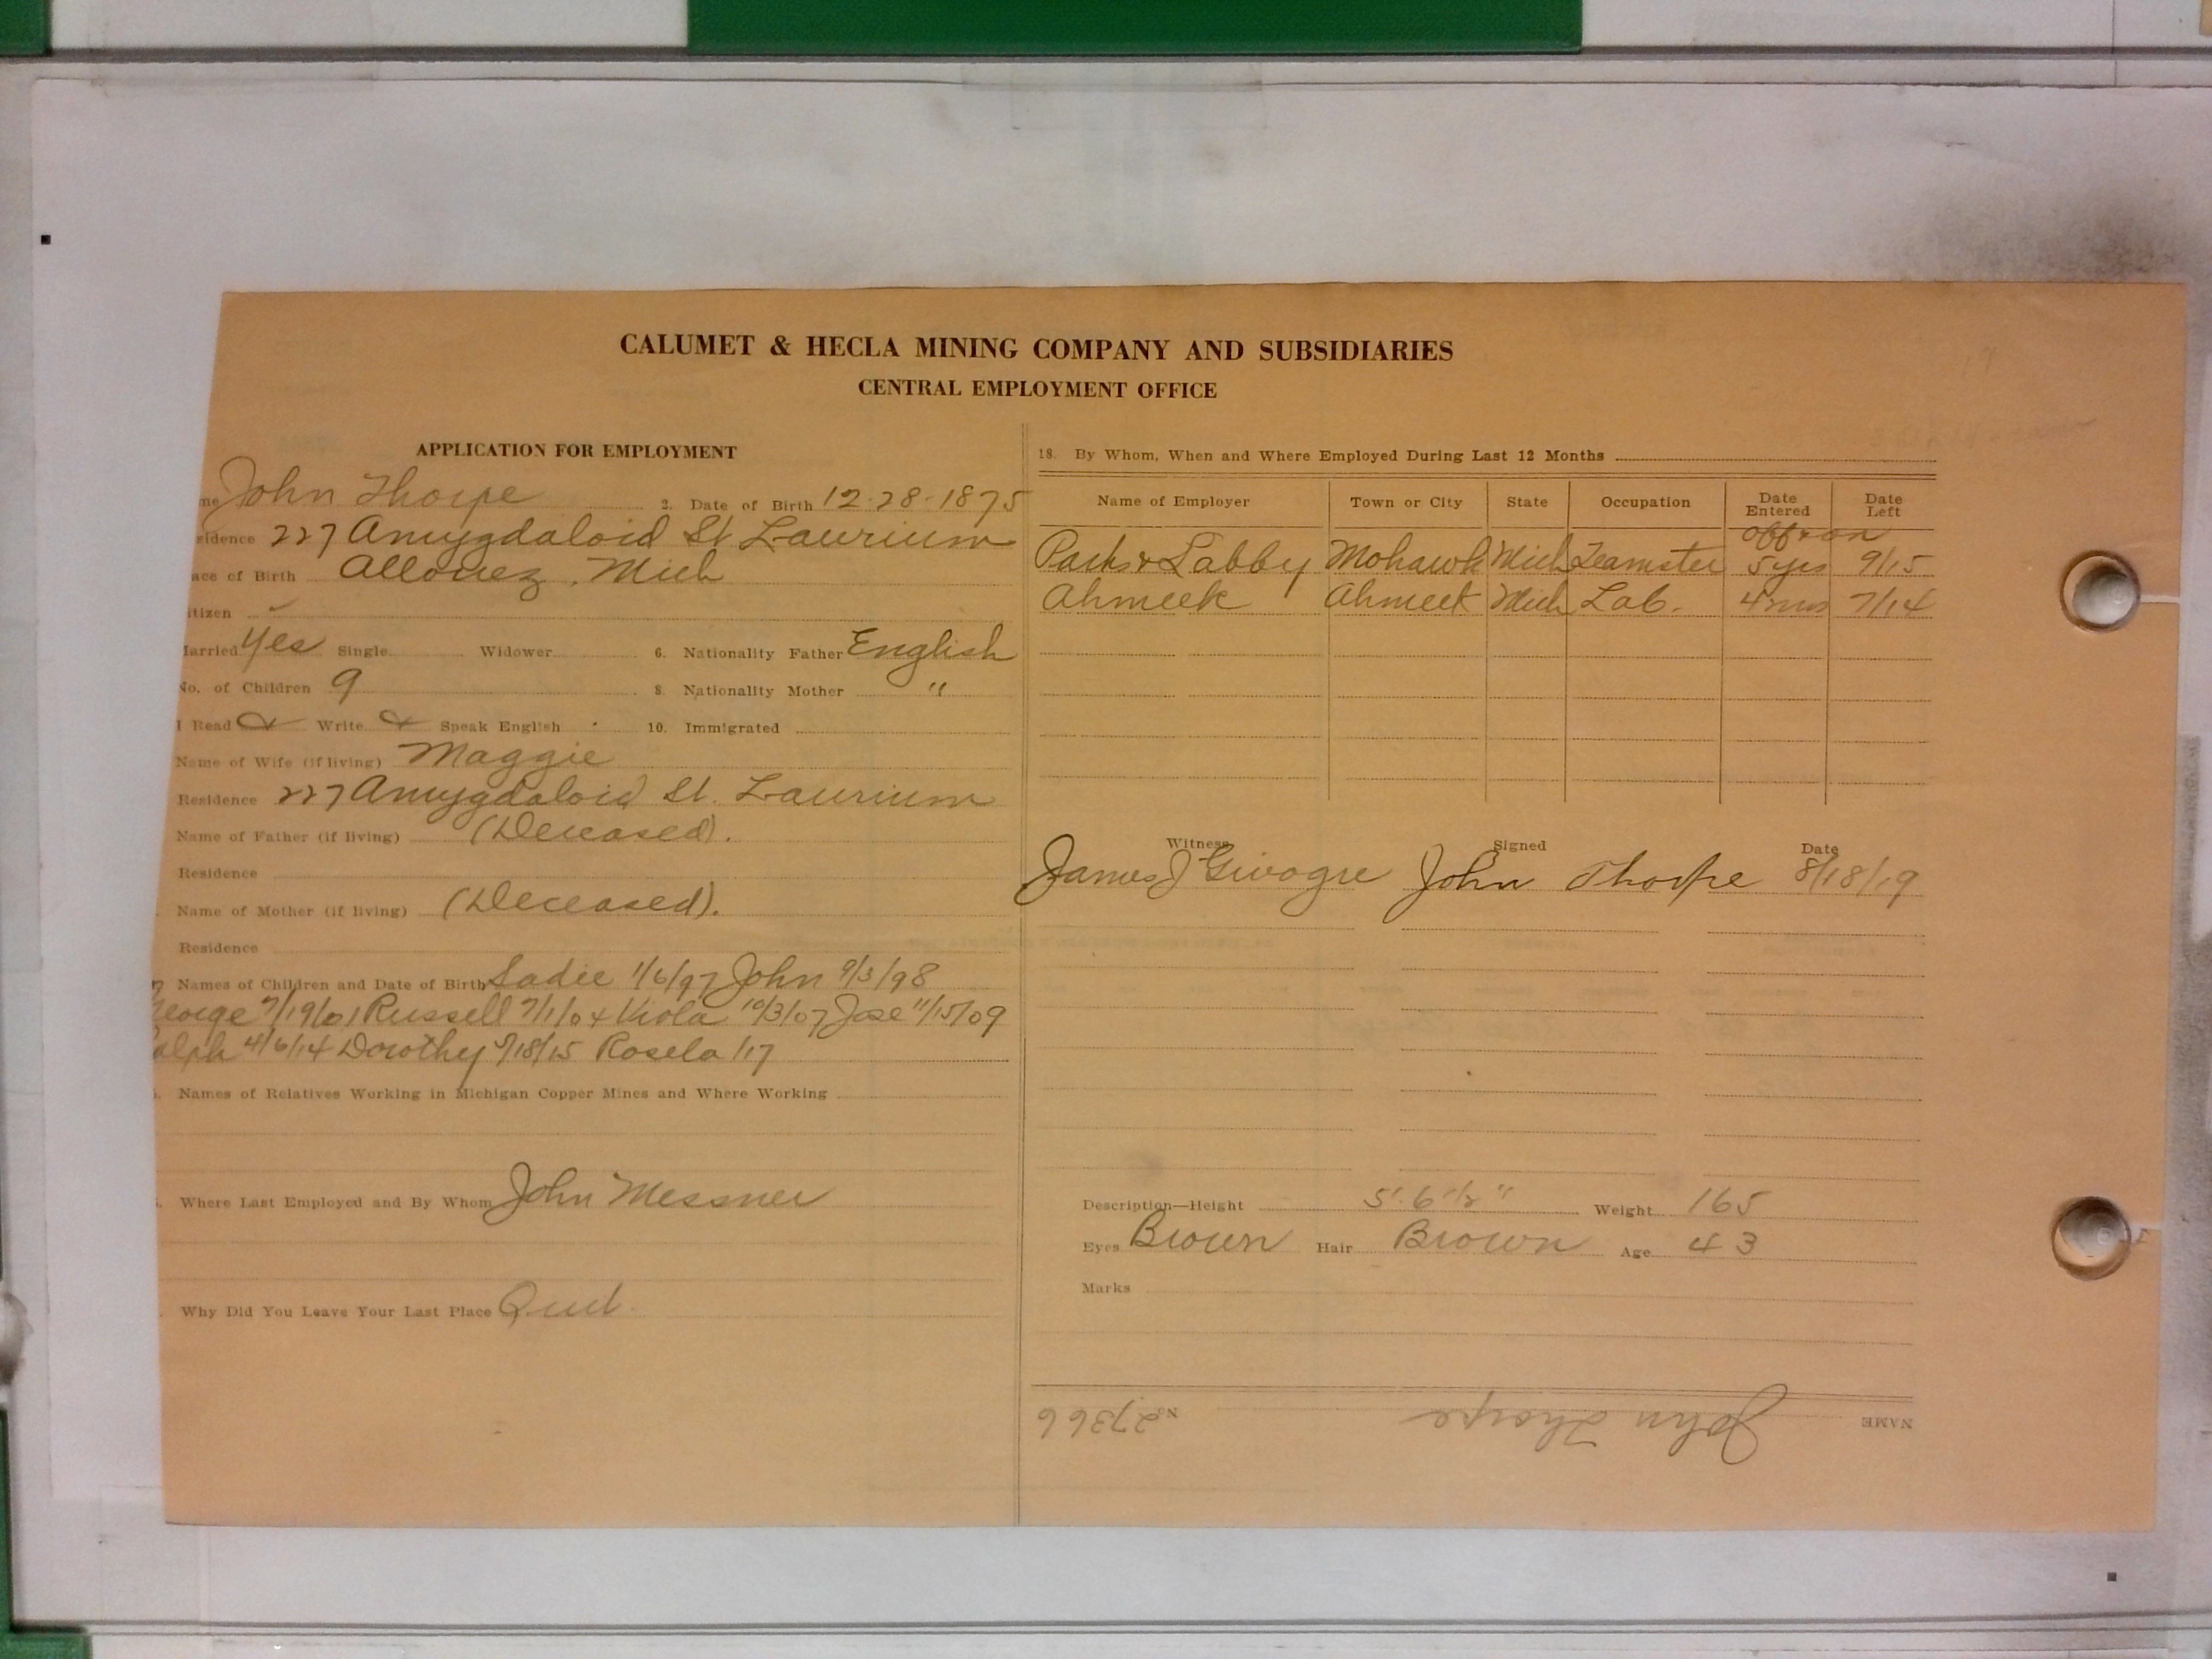 CALUMET & HECLA MINING COMPANY AND SUBSIDIARIES
CENTRAL EMPLOYMENT OFFICE
APPLICATION FOR EMPLOYMENT
me John Thorpe 2. Date of Birth 12-28-1875
sidence 227 Amygdaloid St Laurium
ace of Birth Allouez, Mich
itizen ✓
Married Yes Single Widower 6. Nationality Father English
No. of Children 9 8. Nationality Mother "
I Read Write Speak English 10. Immigrated
Name of Wife (if living) Maggie
Residence 227 Amygdaloid St. Laurium
Name of Father (if living) (Deceased).
Residence
Name of Mother (if living) (Deceased).
Residence
Names of Children and Date of Birth Sadie 1/6/97 John 9/3/98
George 7/19/01 Russell 7/1/04 Viola 10/3/07 Jose 11/15/09
alph 4/6/14 Dorothy 7/18/15 Rosela /17
Names of Relatives Working in Michigan Copper Mines and Where Working
Where Last Employed and By Whom John Messner
Why Did You Leave Your Last Place
18. By Whom, When and Where Employed During Last 12 Months
Name of Employer Town or City State Occupation Date Entered Date Left
off & on
Parks & Labby Mohawk Mich Teamster 5 yrs 9/15
Ahmeek Ahmeek Mich Lab. 4 mos 7/14
Witness Signed Date
James J John Thorpe 8/18/19
Description—Height 5' 6 1/2" Weight 165
Eyes Brown Hair Brown Age 43
Marks
NAME John Thorpe No. 27366